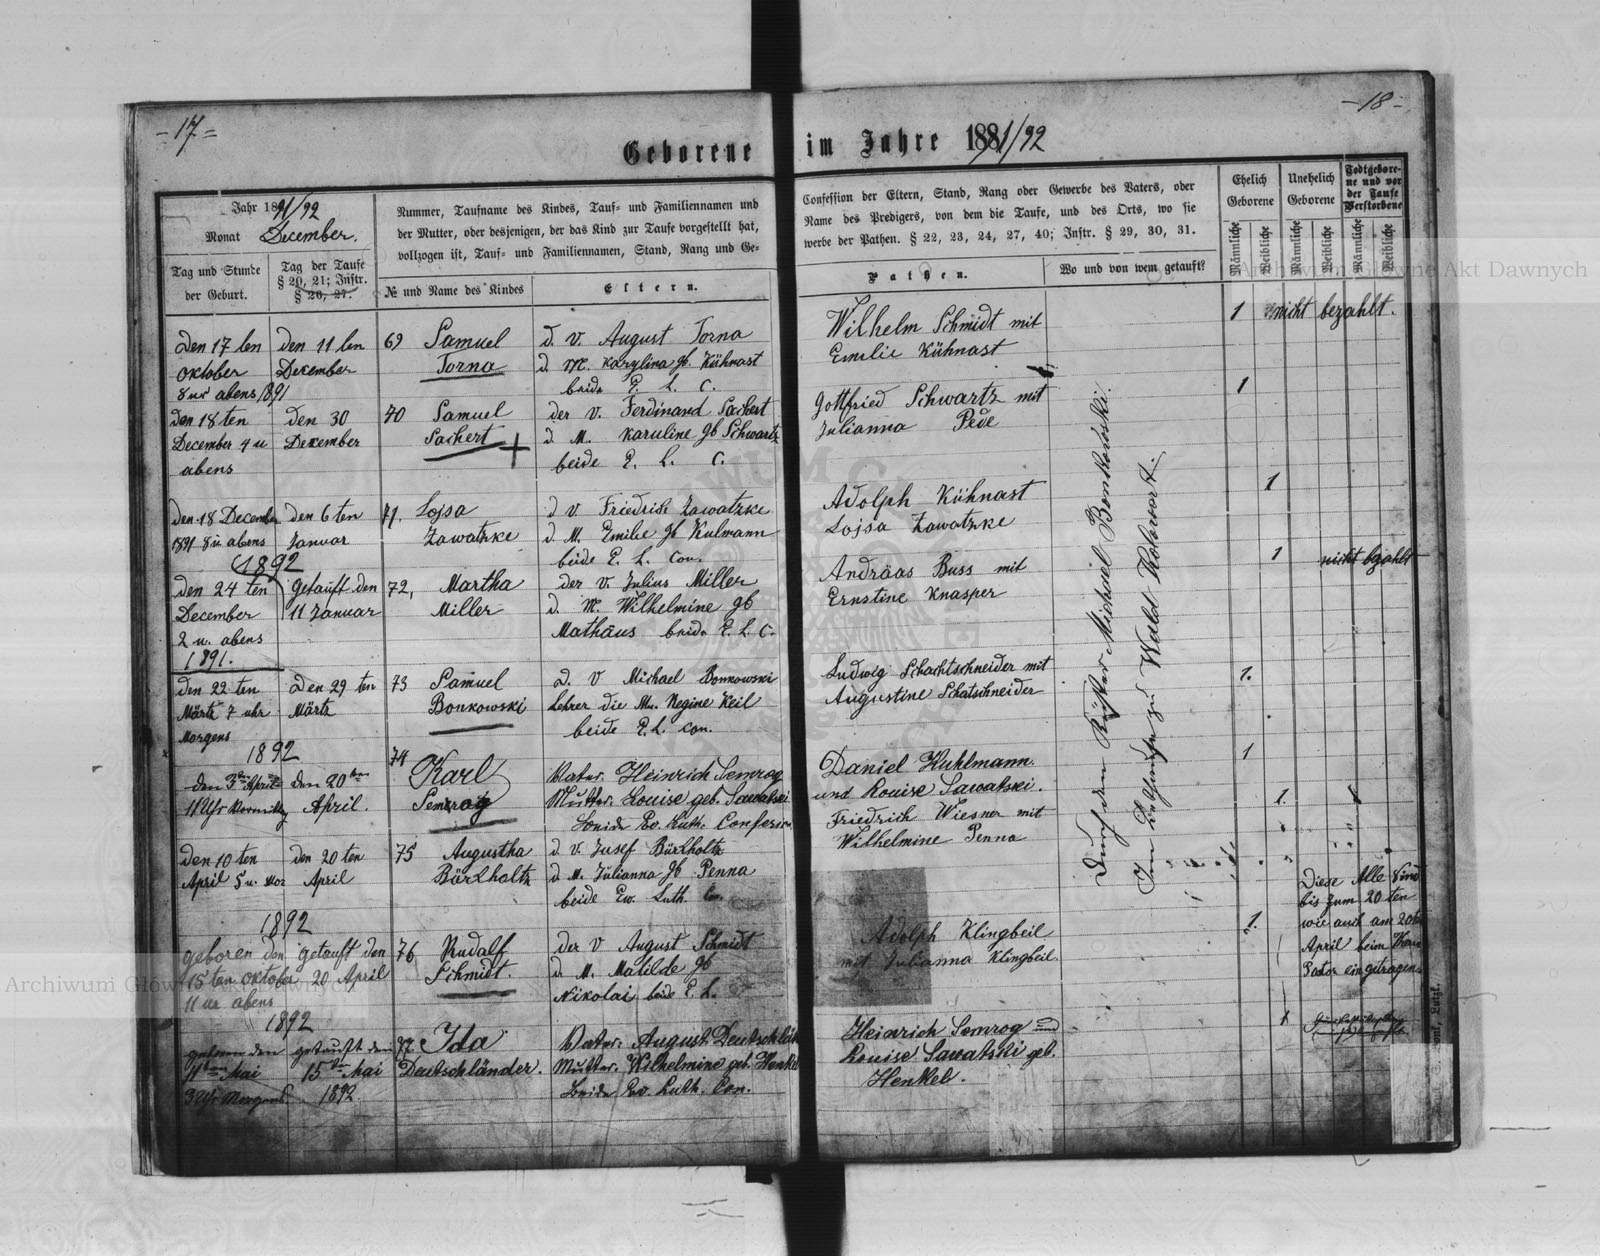 - 17 =
- 18 -
Geborene im Jahre 1891/92
Jahr 1891/92
Monat December.
Tag und Stunde
der Geburt.
Tag der Taufe
§ 20, 21; Instr.
§ 26, 27.
Nummer, Taufname des Kindes, Tauf- und Familiennamen und
der Mutter, oder desjenigen, der das Kind zur Taufe vorgestellt hat,
vollzogen ist, Tauf- und Familiennamen, Stand, Rang und Ge-
№ und Name des Kindes
Eltern.
Confession der Eltern, Stand, Rang oder Gewerbe des Vaters, oder
Name des Predigers, von dem die Taufe, und des Orts, wo sie
werbe der Pathen. § 22, 23, 24, 27, 40; Instr. § 29, 30, 31.
Pathen.
Wo und von wem getauft?
Ehelich
Geborene
Unehelich
Geborene
Todtgebore-
ne und vor
der Taufe
Verstorbene
Männliche
Weibliche
Männliche
Weibliche
Männliche
Weibliche
Den 17 ten
Oktober
8 ur abens 1891
den 11 ten
December
69
Samuel
Torna
d. V. August Torna
d. M. Karylina gb. Kühnast
beide E. L. C.
Wilhelm Schmidt mit
Emilie Kühnast
1
nicht bezahlt.
den 18 ten
December 4 u
abens
Den 30
December
70
Samuel
Sachert
der V. Ferdinand Sachert
d. M. Karuline gb Schwartz
beide E. L. C.
Gottfried Schwartz mit
Julianna Pede
1
den 18 December
1891 8 u abens
den 6 ten
Januar
71.
Lojsa
Zawatzke
d V Friedrich Zawatzke
d. M. Emilie gb Kulmann
beide E. L. Con.
Adolph Kühnast
Lojsa Zawatzke
1
1892
den 24 ten
December
2 u. abens
1891.
getauft den
11 Januar
72,
Martha
Miller
der V. Julius Miller
d. M. Wilhelmine gb
Mathäus beide E. L. C.
Andräas Buss mit
Ernstine Knasper
1
nicht bezahlt
den 22 ten
Märtz 7 uhr
Morgens
Den 29 ten
Märtz
73
Samuel
Bonkowski
d. V Michael Bonkowski
Lehrer die Mu. Regine Keil
beide E. L. Con.
Ludwig Schachtschneider mit
Augustine Schatschneider
1.
1892
den 3ten April
11 Uhr Vormittg
den 20ten
April.
74
Karl
Semrog
Vater. Heinrich Semrog
Mutter. Louise geb. Sawatski
beide Ev. Luth. Confesion
Daniel Kuhlmann.
und Louise Sawatski.
1
den 10 ten
April 5 u. Mor
den 20 ten
April
75
Augustha
Bärkholtz
d. V. Jusef Bärkholtz
d. M. Julianna gb Penna
beide Ew. Luth. Con.
Friedrich Wiesner mit
Wilhelmine Penna
1.
1892
geboren den
15 ten Oktober
11 ur abens
getauft den
20 April
76
Rudalf
Schmidt.
der V August Schmidt
d. M. Matilde gb
Nikolai beide E. L.
Adolph Klingbeil
mit Julianna Klingbeil.
1.
Diese Alle Sind
bis zum 20 ten
wie auch am 20ten
April beim Herr
Pator eingetragen
1892
geboren den
11ten Mai
3 Uhr Morgens
getauft den
15ten Mai
1892.
77.
Ida
Deutschländer.
Vater. August Deutschlän
Mutter. Wilhelmine geb. Henkel
beide Ev. Luth. Con.
Heinrich Semrog und
Louise Sawatski geb.
Henkel.
1
Durch den Küster Michael Bonkowski.
Im Bethause zu Wald Rohowart.
Archiwum Główne Akt Dawnych